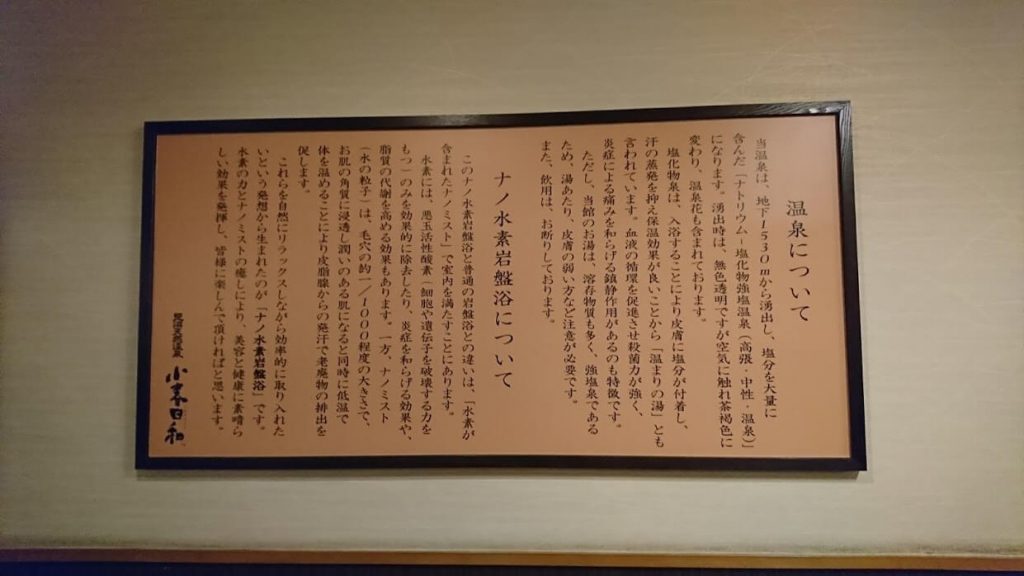 温泉について
当温泉は、地下1530mから湧出し、塩分を大量に
含んだ「ナトリウム-塩化物強塩温泉(高張・中性・温泉)」
になります。湧出時は、無色透明ですが空気に触れ茶褐色に
変わり、温泉花も含まれております。
塩化物泉は、入浴することにより皮膚に塩分が付着し、
汗の蒸発を抑え保温効果が良いことから「温まりの湯」とも
言われています。血液の循環を促進させ殺菌力が強く、
炎症による痛みを和らげる鎮静作用があるのも特徴です。
ただし、当館のお湯は、溶存物質も多く、強塩泉である
ため、湯あたり、皮膚の弱い方など注意が必要です。
また、飲用は、お断りしております。
ナノ水素岩盤浴について
このナノ水素岩盤浴と普通の岩盤浴との違いは、「水素が
含まれたナノミスト」で室内を満たすことにあります。
水素には、悪玉活性酸素(細胞や遺伝子を破壊する力を
もつ)のみを効果的に除去したり、炎症を和らげる効果や、
脂質の代謝を高める効果もあります。一方、ナノミスト
(水の粒子)は、毛穴の約1/1000程度の大きさで、
お肌の角質に浸透し潤いのある肌になると同時に低温で
体を温めることにより皮脂腺からの発汗で老廃物の排出を
促します。
これらを自然にリラックスしながら効率的に取り入れた
いという発想から生まれたのが「ナノ水素岩盤浴」です。
水素の力とナノミストの癒しにより、美容と健康に素晴ら
しい効果を発揮し、皆様に楽しんで頂ければと思います。
天然温泉
小春日和